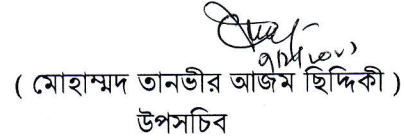 ( মোহাম্মদ তানভীর আজম ছিদ্দিকী )
উপসচিব